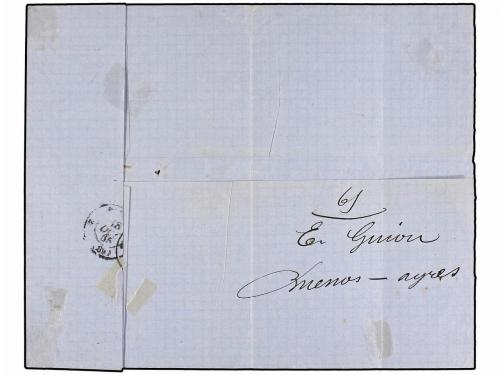 61
E. Guion
Buenos - ayres